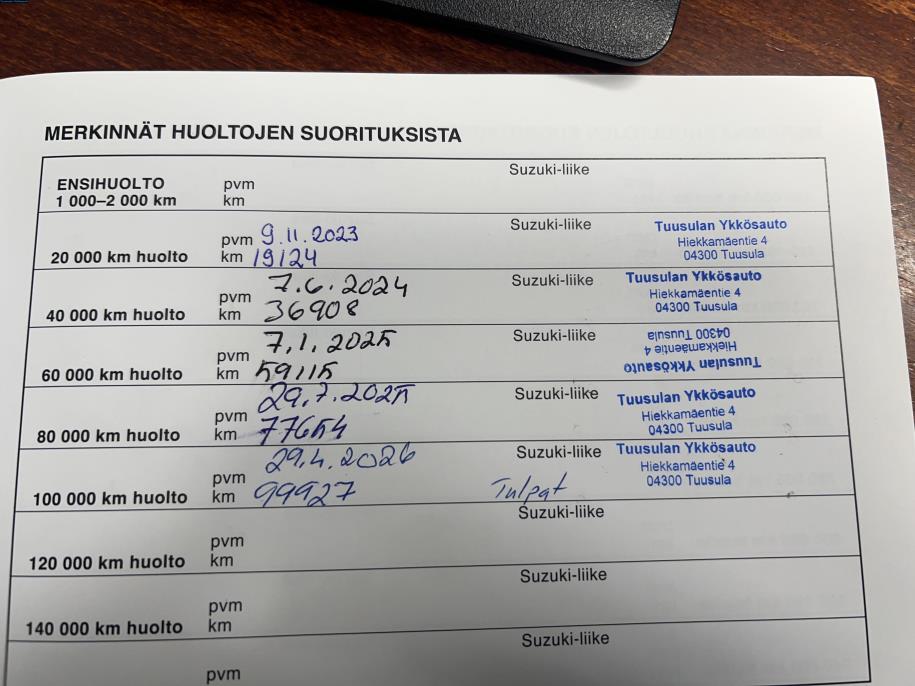 MERKINNÄT HUOLTOJEN SUORITUKSISTA
ENSIHUOLTO
1 000–2 000 km
pvm
km
Suzuki-liike
20 000 km huolto
pvm 9.11.2023
km 19124
Suzuki-liike
Tuusulan Ykkösauto
Hiekkamäentie 4
04300 Tuusula
40 000 km huolto
pvm 7.6.2024
km 36908
Suzuki-liike
Tuusulan Ykkösauto
Hiekkamäentie 4
04300 Tuusula
60 000 km huolto
pvm 7.1.2025
km 59115
Suzuki-liike
Tuusulan Ykkösauto
Hiekkamäentie 4
04300 Tuusula
80 000 km huolto
pvm 29.7.2025
km 77654
Suzuki-liike
Tuusulan Ykkösauto
Hiekkamäentie 4
04300 Tuusula
100 000 km huolto
pvm 29.4.2026
km 99927
Suzuki-liike
Tulpat
Tuusulan Ykkösauto
Hiekkamäentie 4
04300 Tuusula
120 000 km huolto
pvm
km
Suzuki-liike
140 000 km huolto
pvm
km
Suzuki-liike
pvm
Suzuki-liike